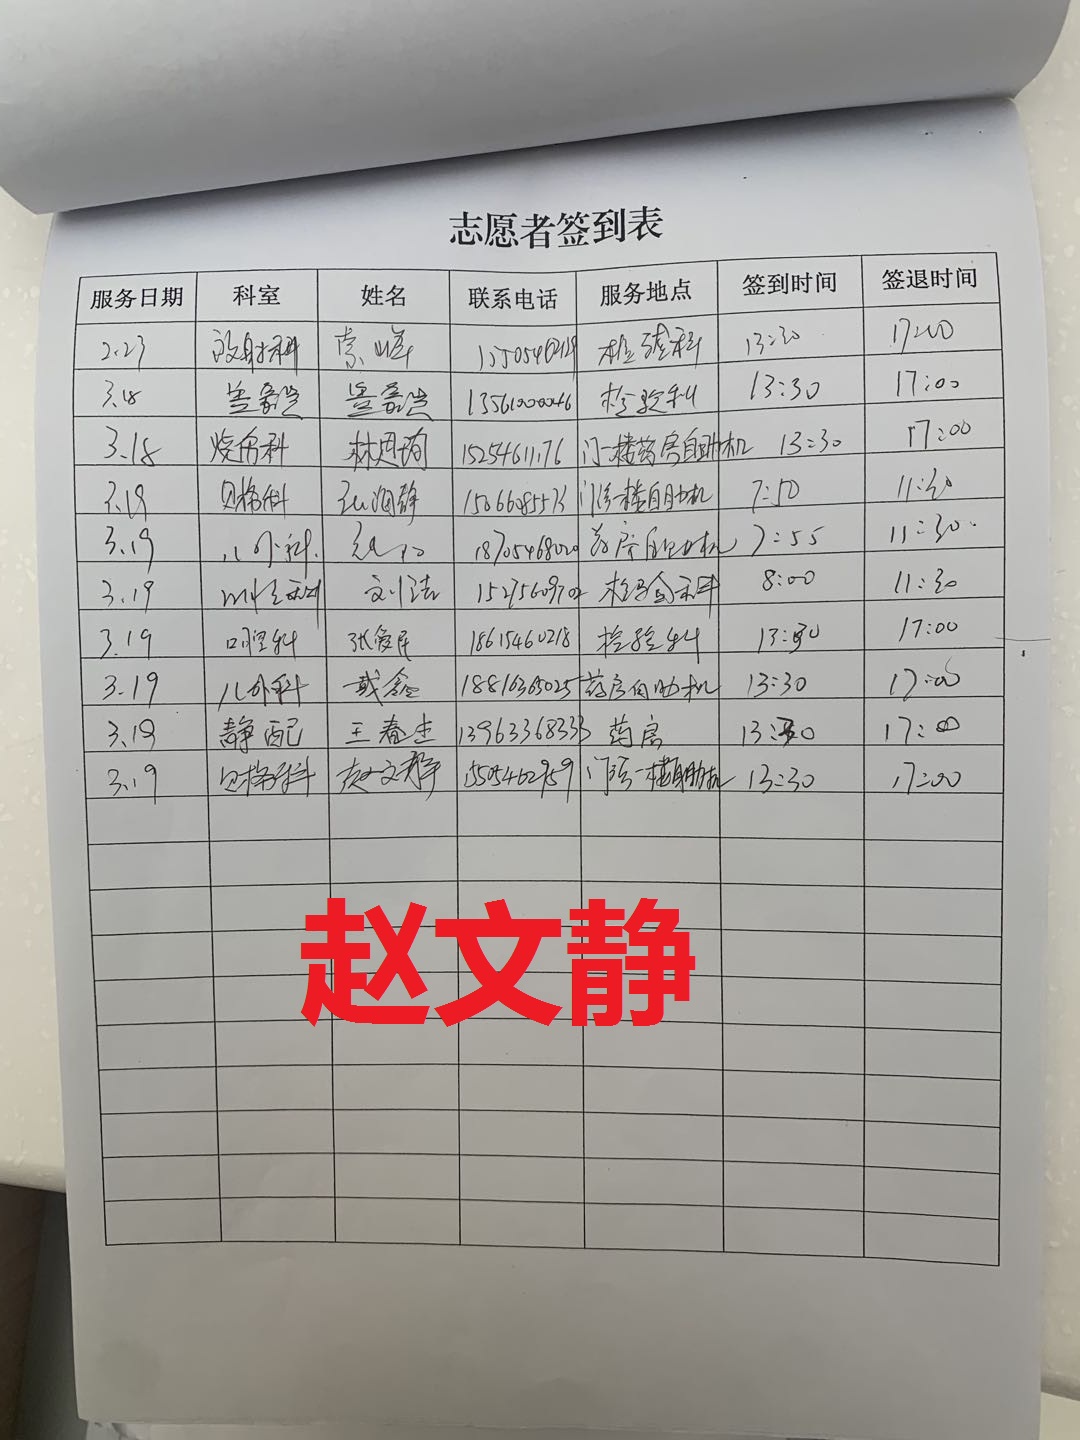 志愿者签到表
服务日期 科室 姓名 联系电话 服务地点 签到时间 签退时间
2.27 放射科 检验科 13:30 17:00
3.18 13561000046 检验科 13:30 17:00
3.18 烧伤科 15254611176 门一楼药房自助机 13:30 17:00
3.19 海静 15066085573 门诊一楼自助机 7:50 11:30
3.19 儿外科 18705468020 药房自助机 7:55 11:30
3.19 刘洁 检验科 8:00 11:30
3.19 口腔科 张爱民 18615460218 检验科 13:30 17:00
3.19 儿外科 戴鑫 18816365025 药房自助机 13:30 17:00
3.19 静配 王春生 13963368333 药房 13:30 17:00
3.19 赵文静 15505462959 门诊一楼自助机 13:30 17:00
赵文静